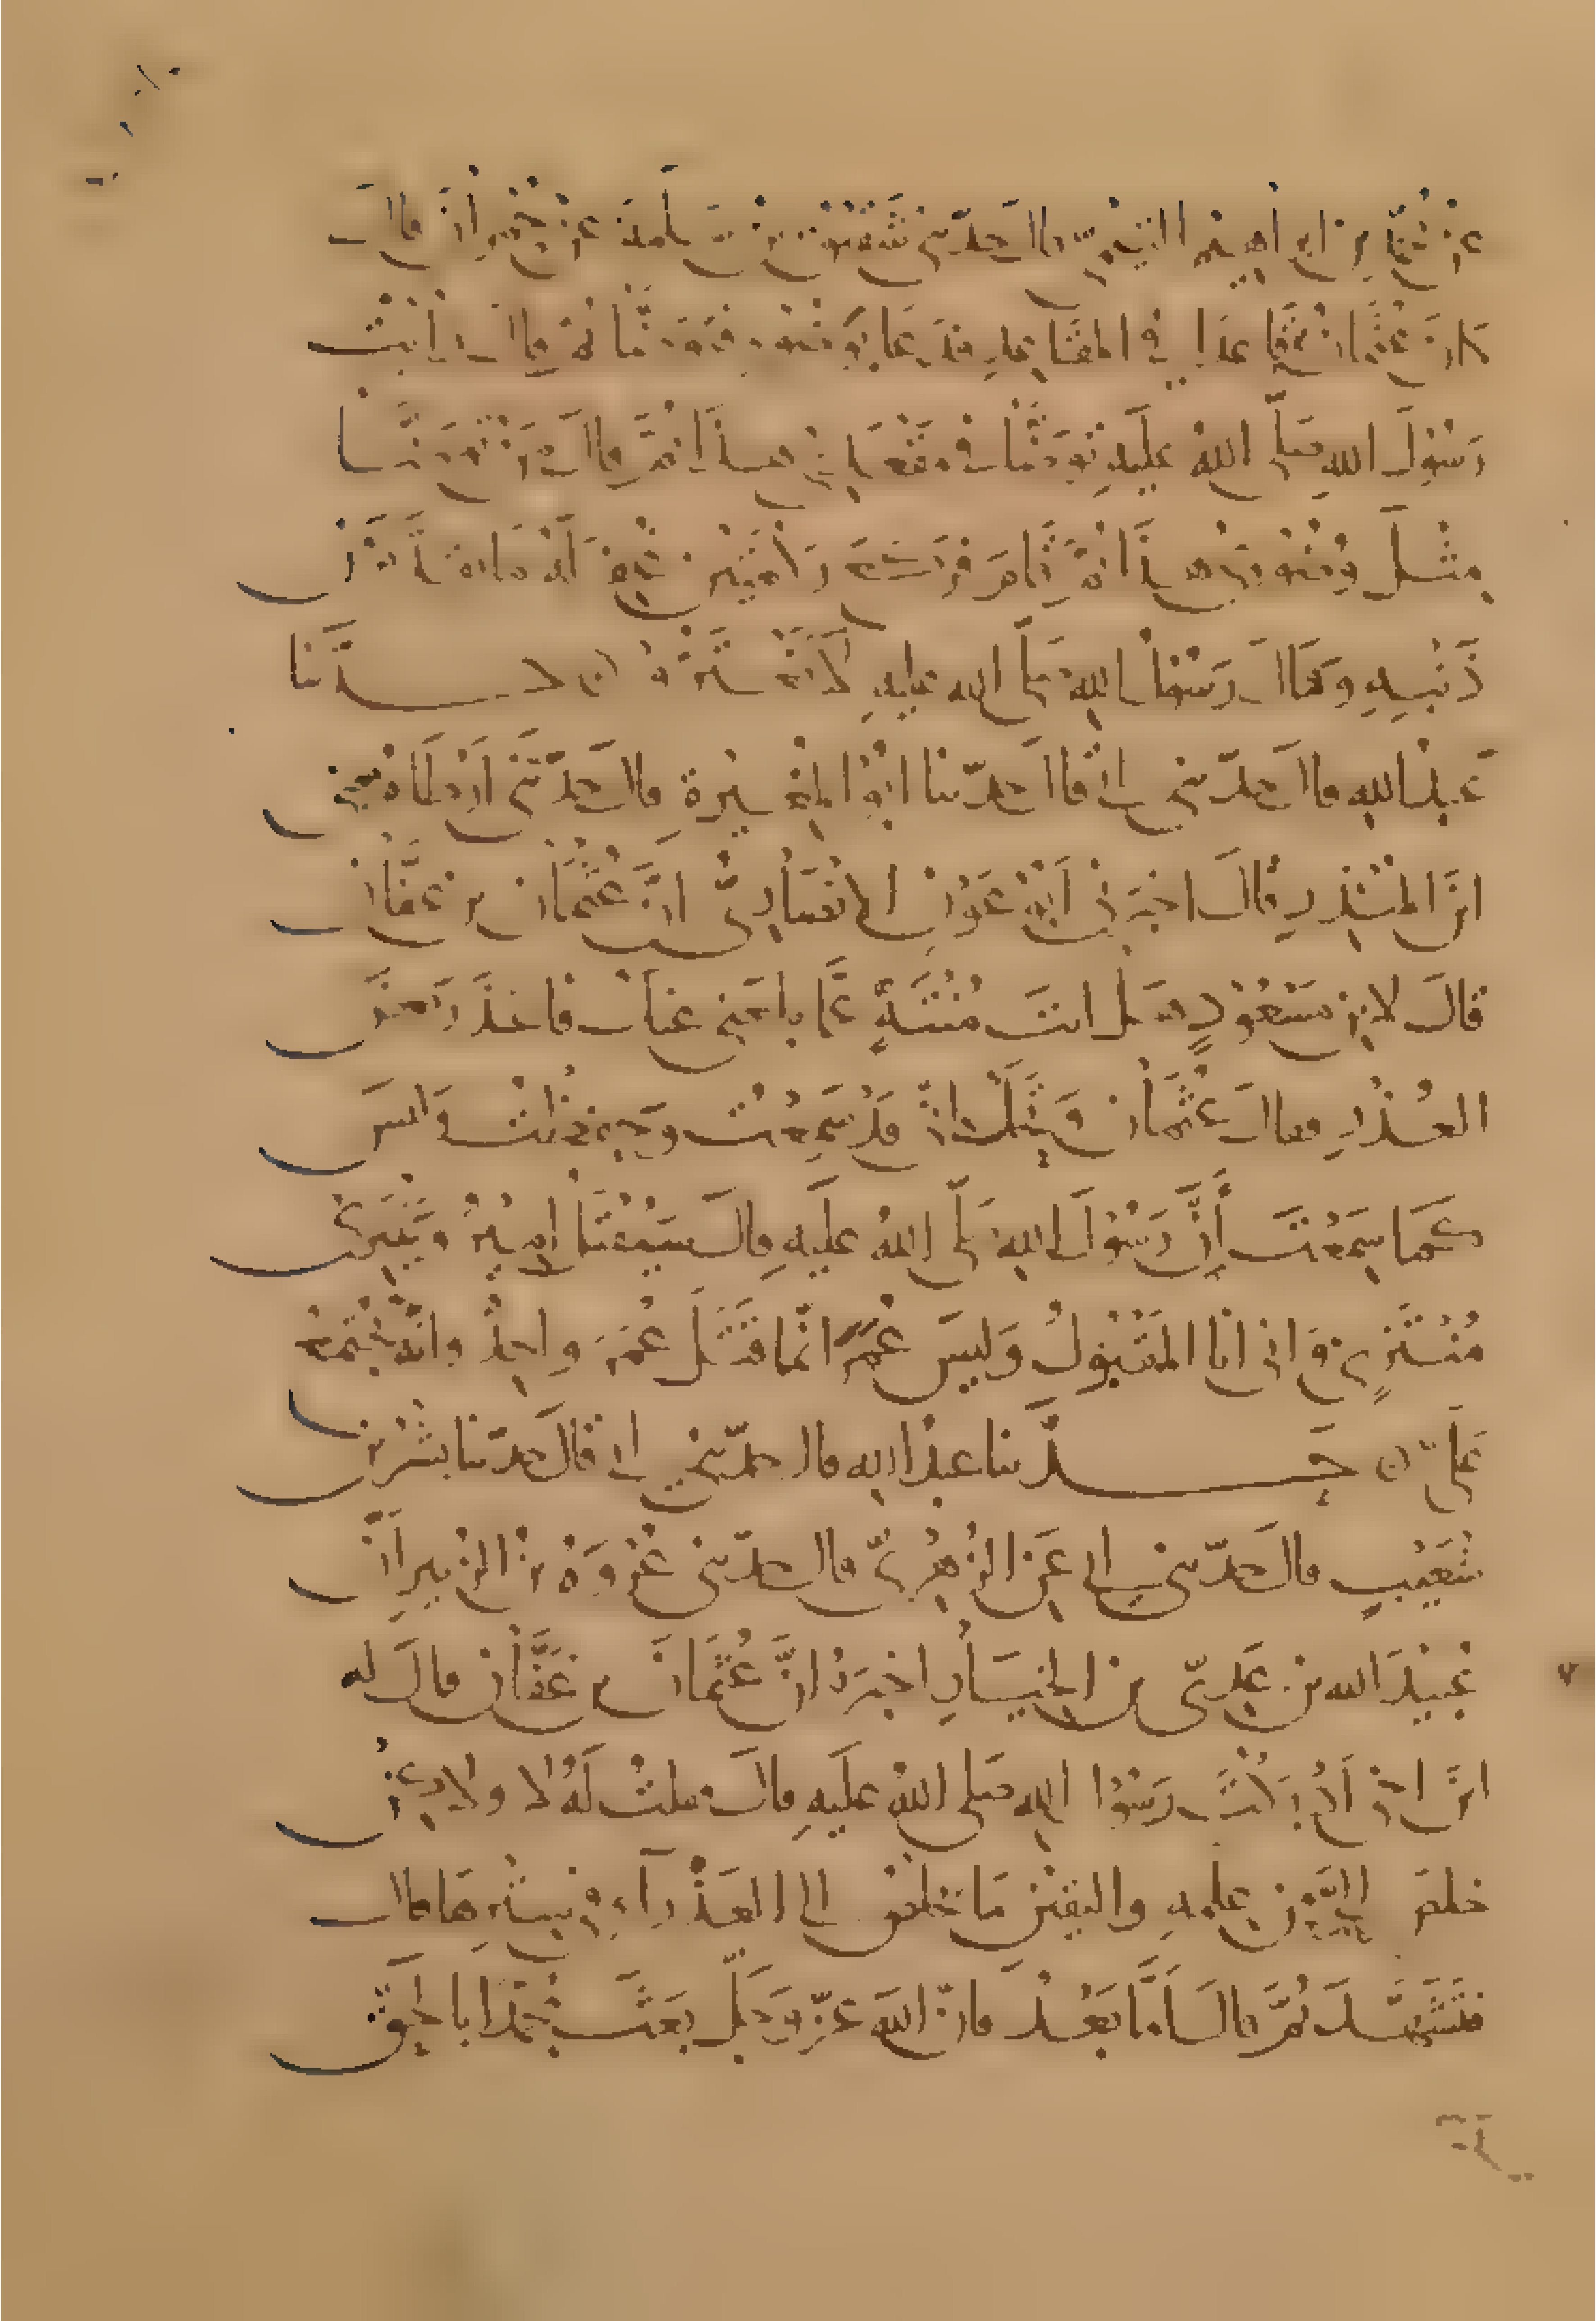 عن محمد بن ابراهيم التيمي قال حدثني شقيق بن سلمة عن حمران قال
كان عثمان قاعدا في المقاعد فدعا بوضوء فتوضأ ثم قال رأيت
رسول الله صلى الله عليه توضأ في مقعدي هذا ثم قال من توضأ
مثل وضوئي هذا ثم قام فركع ركعتين غفر له ما تقدم من
ذنبه وقال رسول الله صلى الله عليه لا تغتروا حدثنا
عبد الله قال حدثني ابي قال حدثنا ابو المغيرة قال حدثني ارطاة يعني
ابن المنذر قال اخبرني ابو عون الانصاري ان عثمان بن عفان
قال لابن مسعود هل انت منته عما بلغني عنك فاعتذر بعض
العذر فقال عثمان ويلك اني قد سمعت وحفظت وليس
كما سمعت أن رسول الله صلى الله عليه قال سيقتل امير وينتزي
منتزي واني انا المقتول وليس عمر انما قتل عمر واحد وانه يجتمع
علي حدثنا عبد الله قال حدثني ابي قال حدثنا بشر بن
شعيب قال حدثني ابي عن الزهري قال حدثني عروة بن الزبير ان
عبيد الله بن عدي بن الخيار اخبره ان عثمان بن عفان قال له
ابن اخي أدركت رسول الله صلى الله عليه قال فقلت له لا ولكن
خلص الي من علمه واليقين ما يخلص الى العذراء في سترها قال
فتشهد ثم قال اما بعد فان الله عز وجل بعث محمدا بالحق